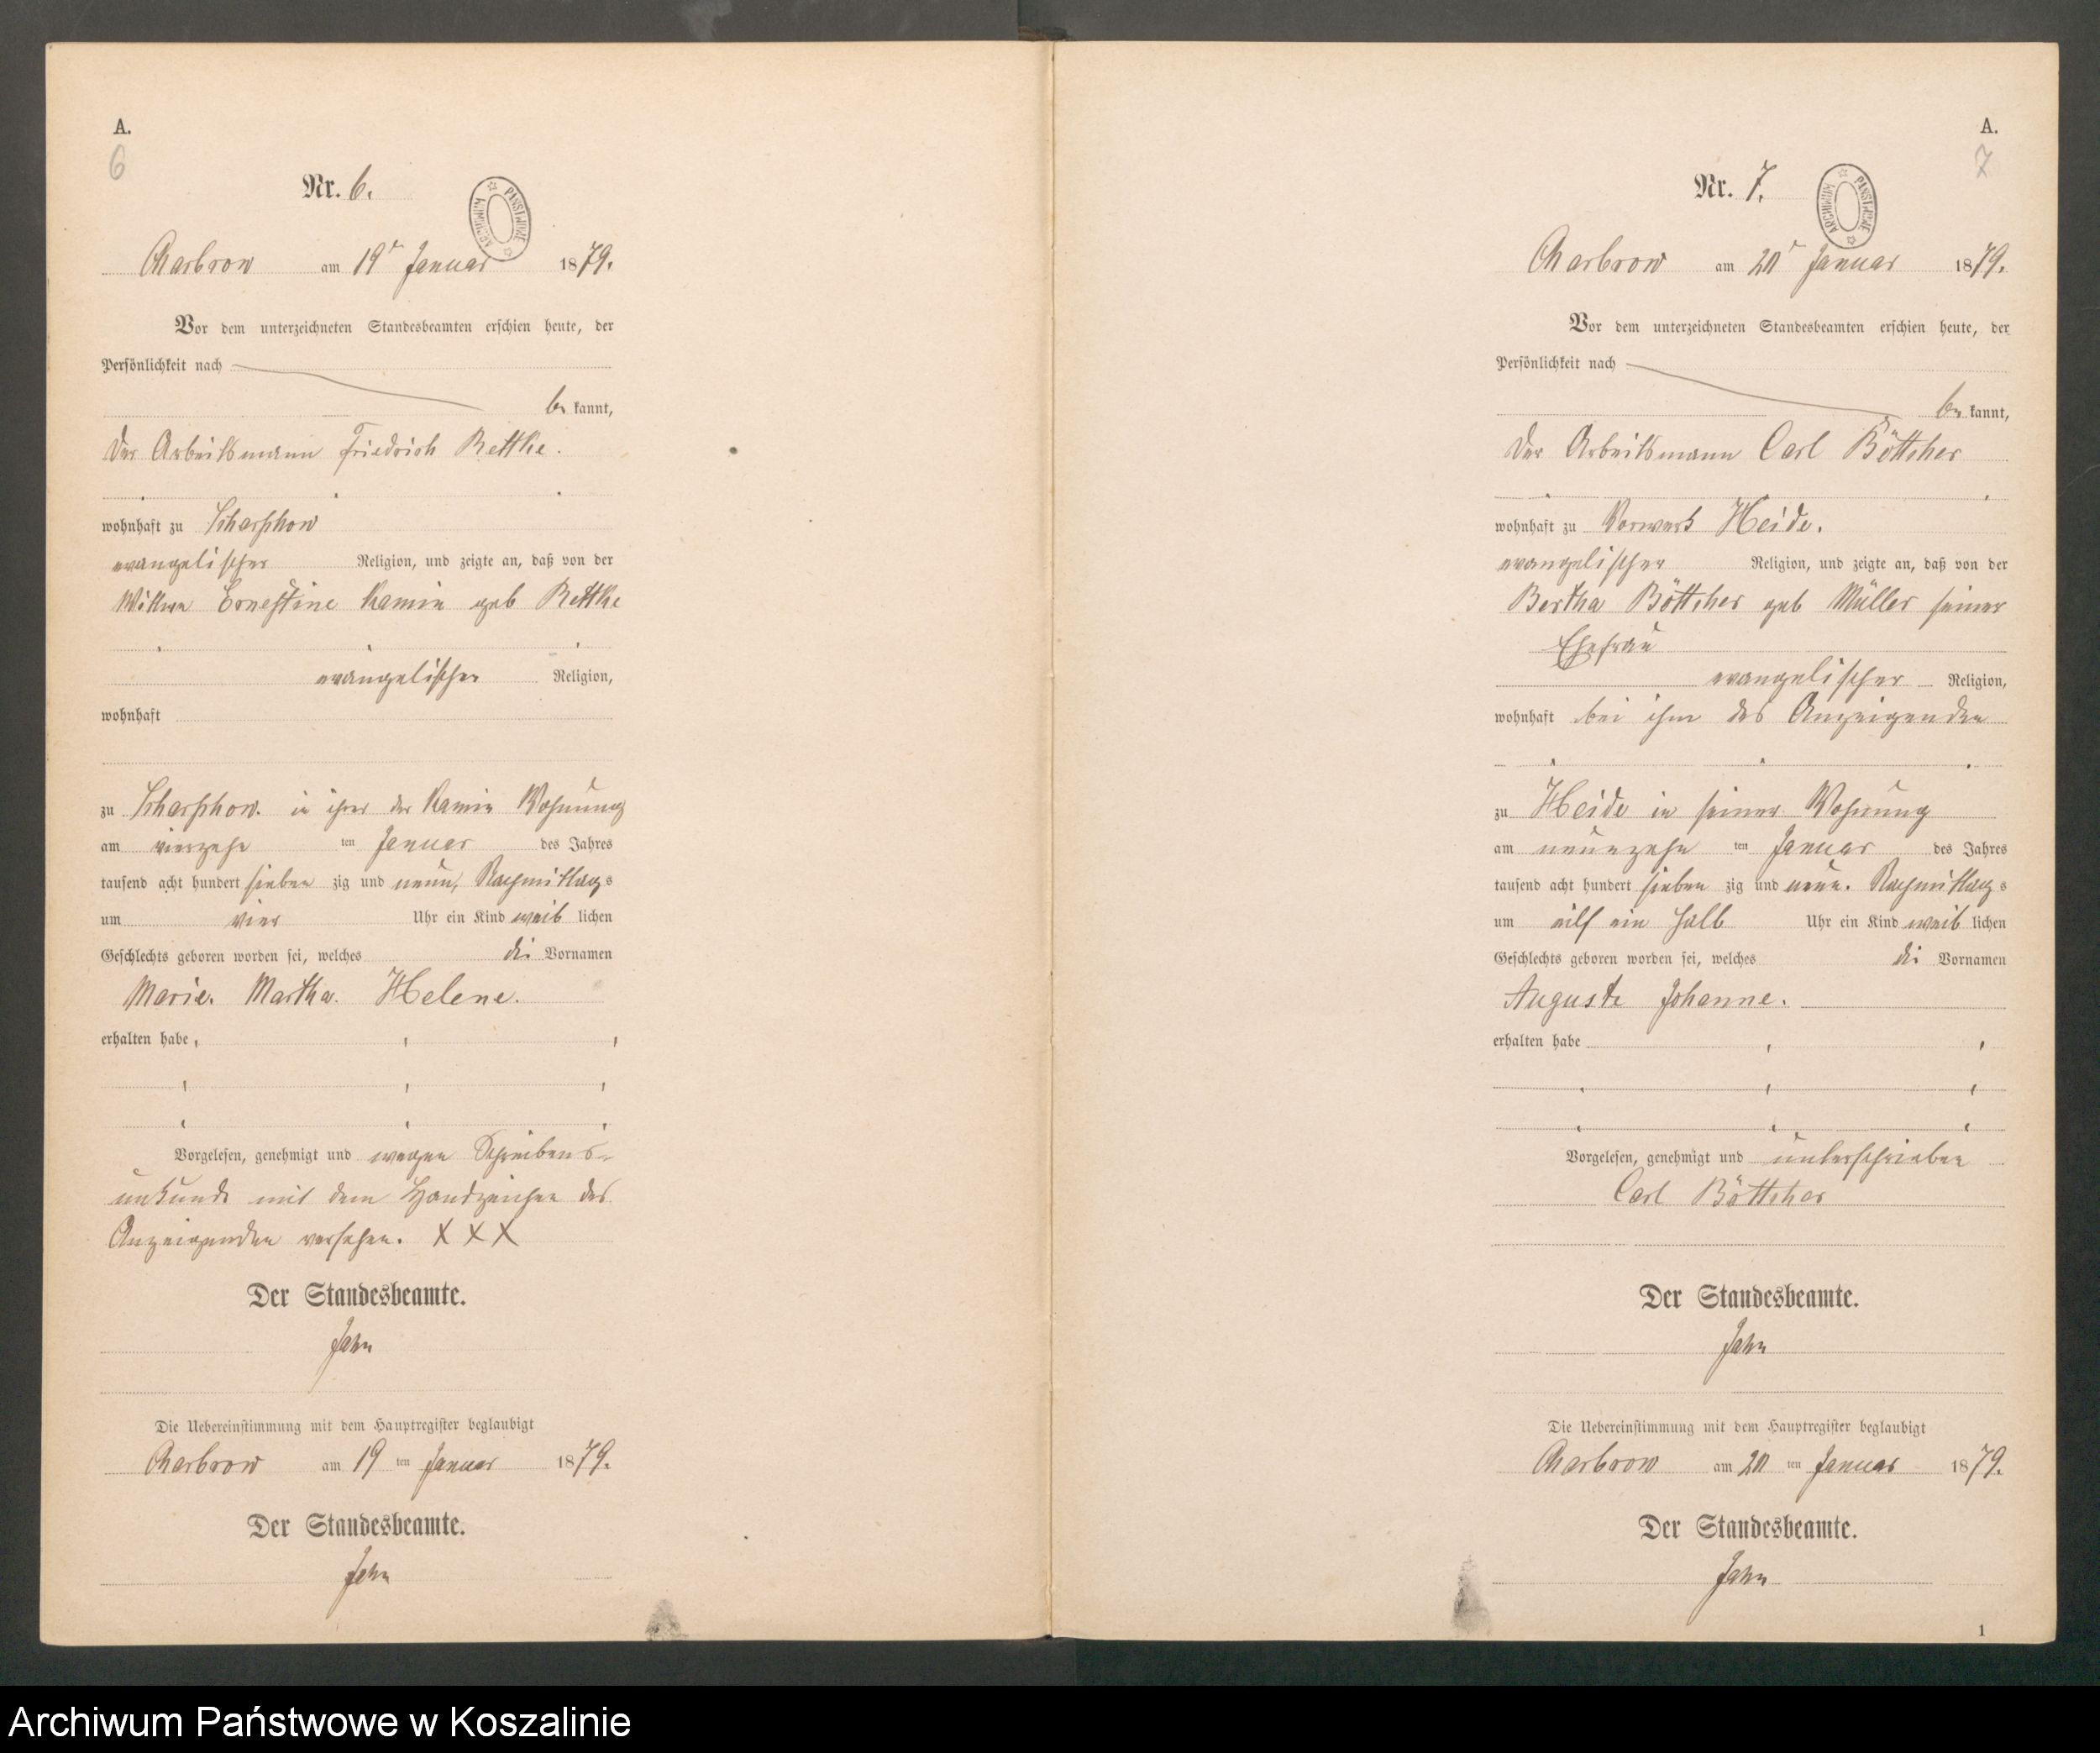 A.
6
Nr. 6.
ARCHIWUM PAŃSTWOWE
Charbrow am 19t Januar 1879.
Vor dem unterzeichneten Standesbeamten erschien heute, der
Persönlichkeit nach
be kannt,
der Arbeitsmann Friedrich Rettke.
wohnhaft zu Scharschow
evangelischer Religion, und zeigte an, daß von der
Wittwe Ernestine Kamin geb Rettke
evangelischer Religion,
wohnhaft
zu Scharschow. in ihrer der Kamin Wohnung
am vierzehn ten Januar des Jahres
tausend acht hundert sieben zig und neun, Nachmittags
um vier Uhr ein Kind weib lichen
Geschlechts geboren worden sei, welches die Vornamen
Marie. Martha. Helene.
erhalten habe
Vorgelesen, genehmigt und wegen Schreibens-
unkunde mit dem Handzeichen des
Anzeigenden versehen. X X X
Der Standesbeamte.
Jahn
Die Uebereinstimmung mit dem Hauptregister beglaubigt
Charbrow am 19 ten Januar 1879.
Der Standesbeamte.
Jahn
A.
7
Nr. 7.
ARCHIWUM PAŃSTWOWE
Charbrow am 20t Januar 1879.
Vor dem unterzeichneten Standesbeamten erschien heute, der
Persönlichkeit nach
be kannt,
der Arbeitsmann Carl Böttcher
wohnhaft zu Vorwerk Heide.
evangelischer Religion, und zeigte an, daß von der
Bertha Böttcher geb Müller seiner
Ehefrau
evangelischer Religion,
wohnhaft bei ihm des Anzeigenden
zu Heide in seiner Wohnung
am neunzehn ten Januar des Jahres
tausend acht hundert sieben zig und neun. Nachmittags
um eilf ein halb Uhr ein Kind weib lichen
Geschlechts geboren worden sei, welches die Vornamen
Auguste Johanne.
erhalten habe
Vorgelesen, genehmigt und unterschrieben
Carl Böttcher
Der Standesbeamte.
Jahn
Die Uebereinstimmung mit dem Hauptregister beglaubigt
Charbrow am 20 ten Januar 1879.
Der Standesbeamte.
Jahn
1
Archiwum Państwowe w Koszalinie